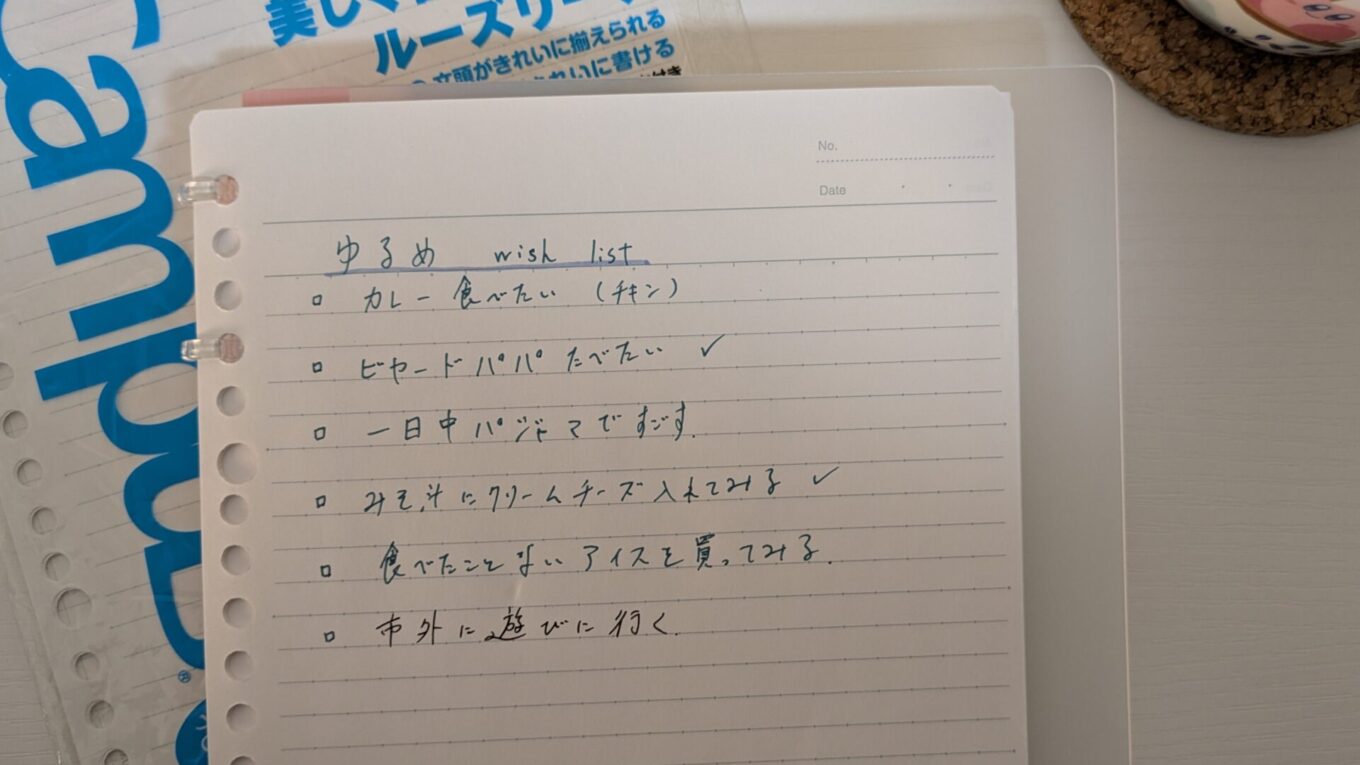 Campus
美しく
ルーズリーフ
文頭がきれいに揃えられる
きれいに書ける
No.
Date
ゆるめ wish list
□ カレー食べたい (チキン)
□ ビヤードパパたべたい ✓
□ 一日中パジャマですごす.
□ みそ汁にクリームチーズ入れてみる ✓
□ 食べたことないアイスを買ってみる.
□ 市外に遊びに行く.